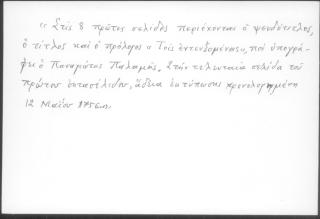 « Στὶς 8 πρῶτες σελίδες περιέχονται ὁ ψευδότιτλος,
ὁ τίτλος καὶ ὁ πρόλογος « Τοῖς ἐντευξομένοις», ποὺ ὑπογρά-
φει ὁ Παναγιώτης Παλαμᾶς. Στὴν τελευταία σελίδα τοῦ
πρώτου ἑπτασέλιδου, ἄδεια ἐκτύπωσης χρονολογημένη
12 Μαΐου 1758